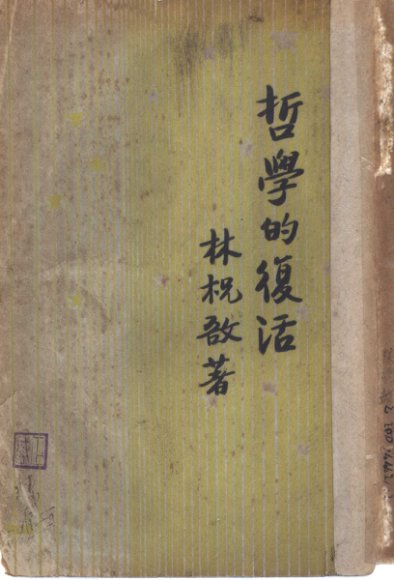 哲學的復活
林柷敔著